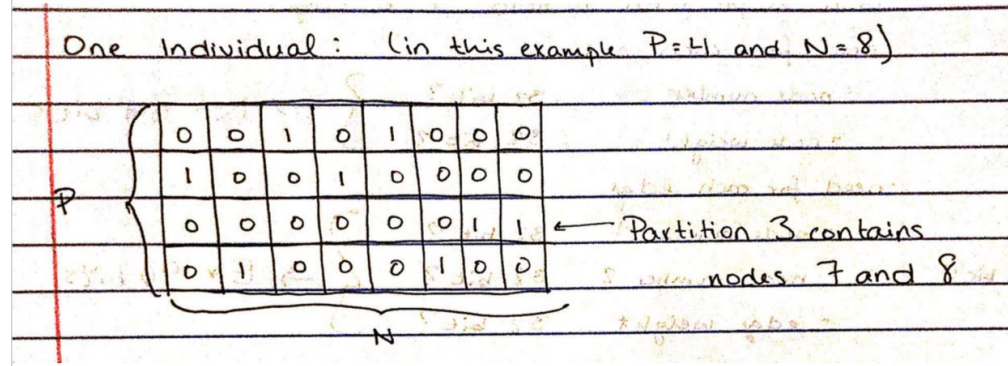 One Individual: (in this example P=4 and N=8)
0 0 1 0 1 0 0 0
1 0 0 1 0 0 0 0
P
0 0 0 0 0 0 1 1 ← Partition 3 contains
0 1 0 0 0 1 0 0 nodes 7 and 8
N